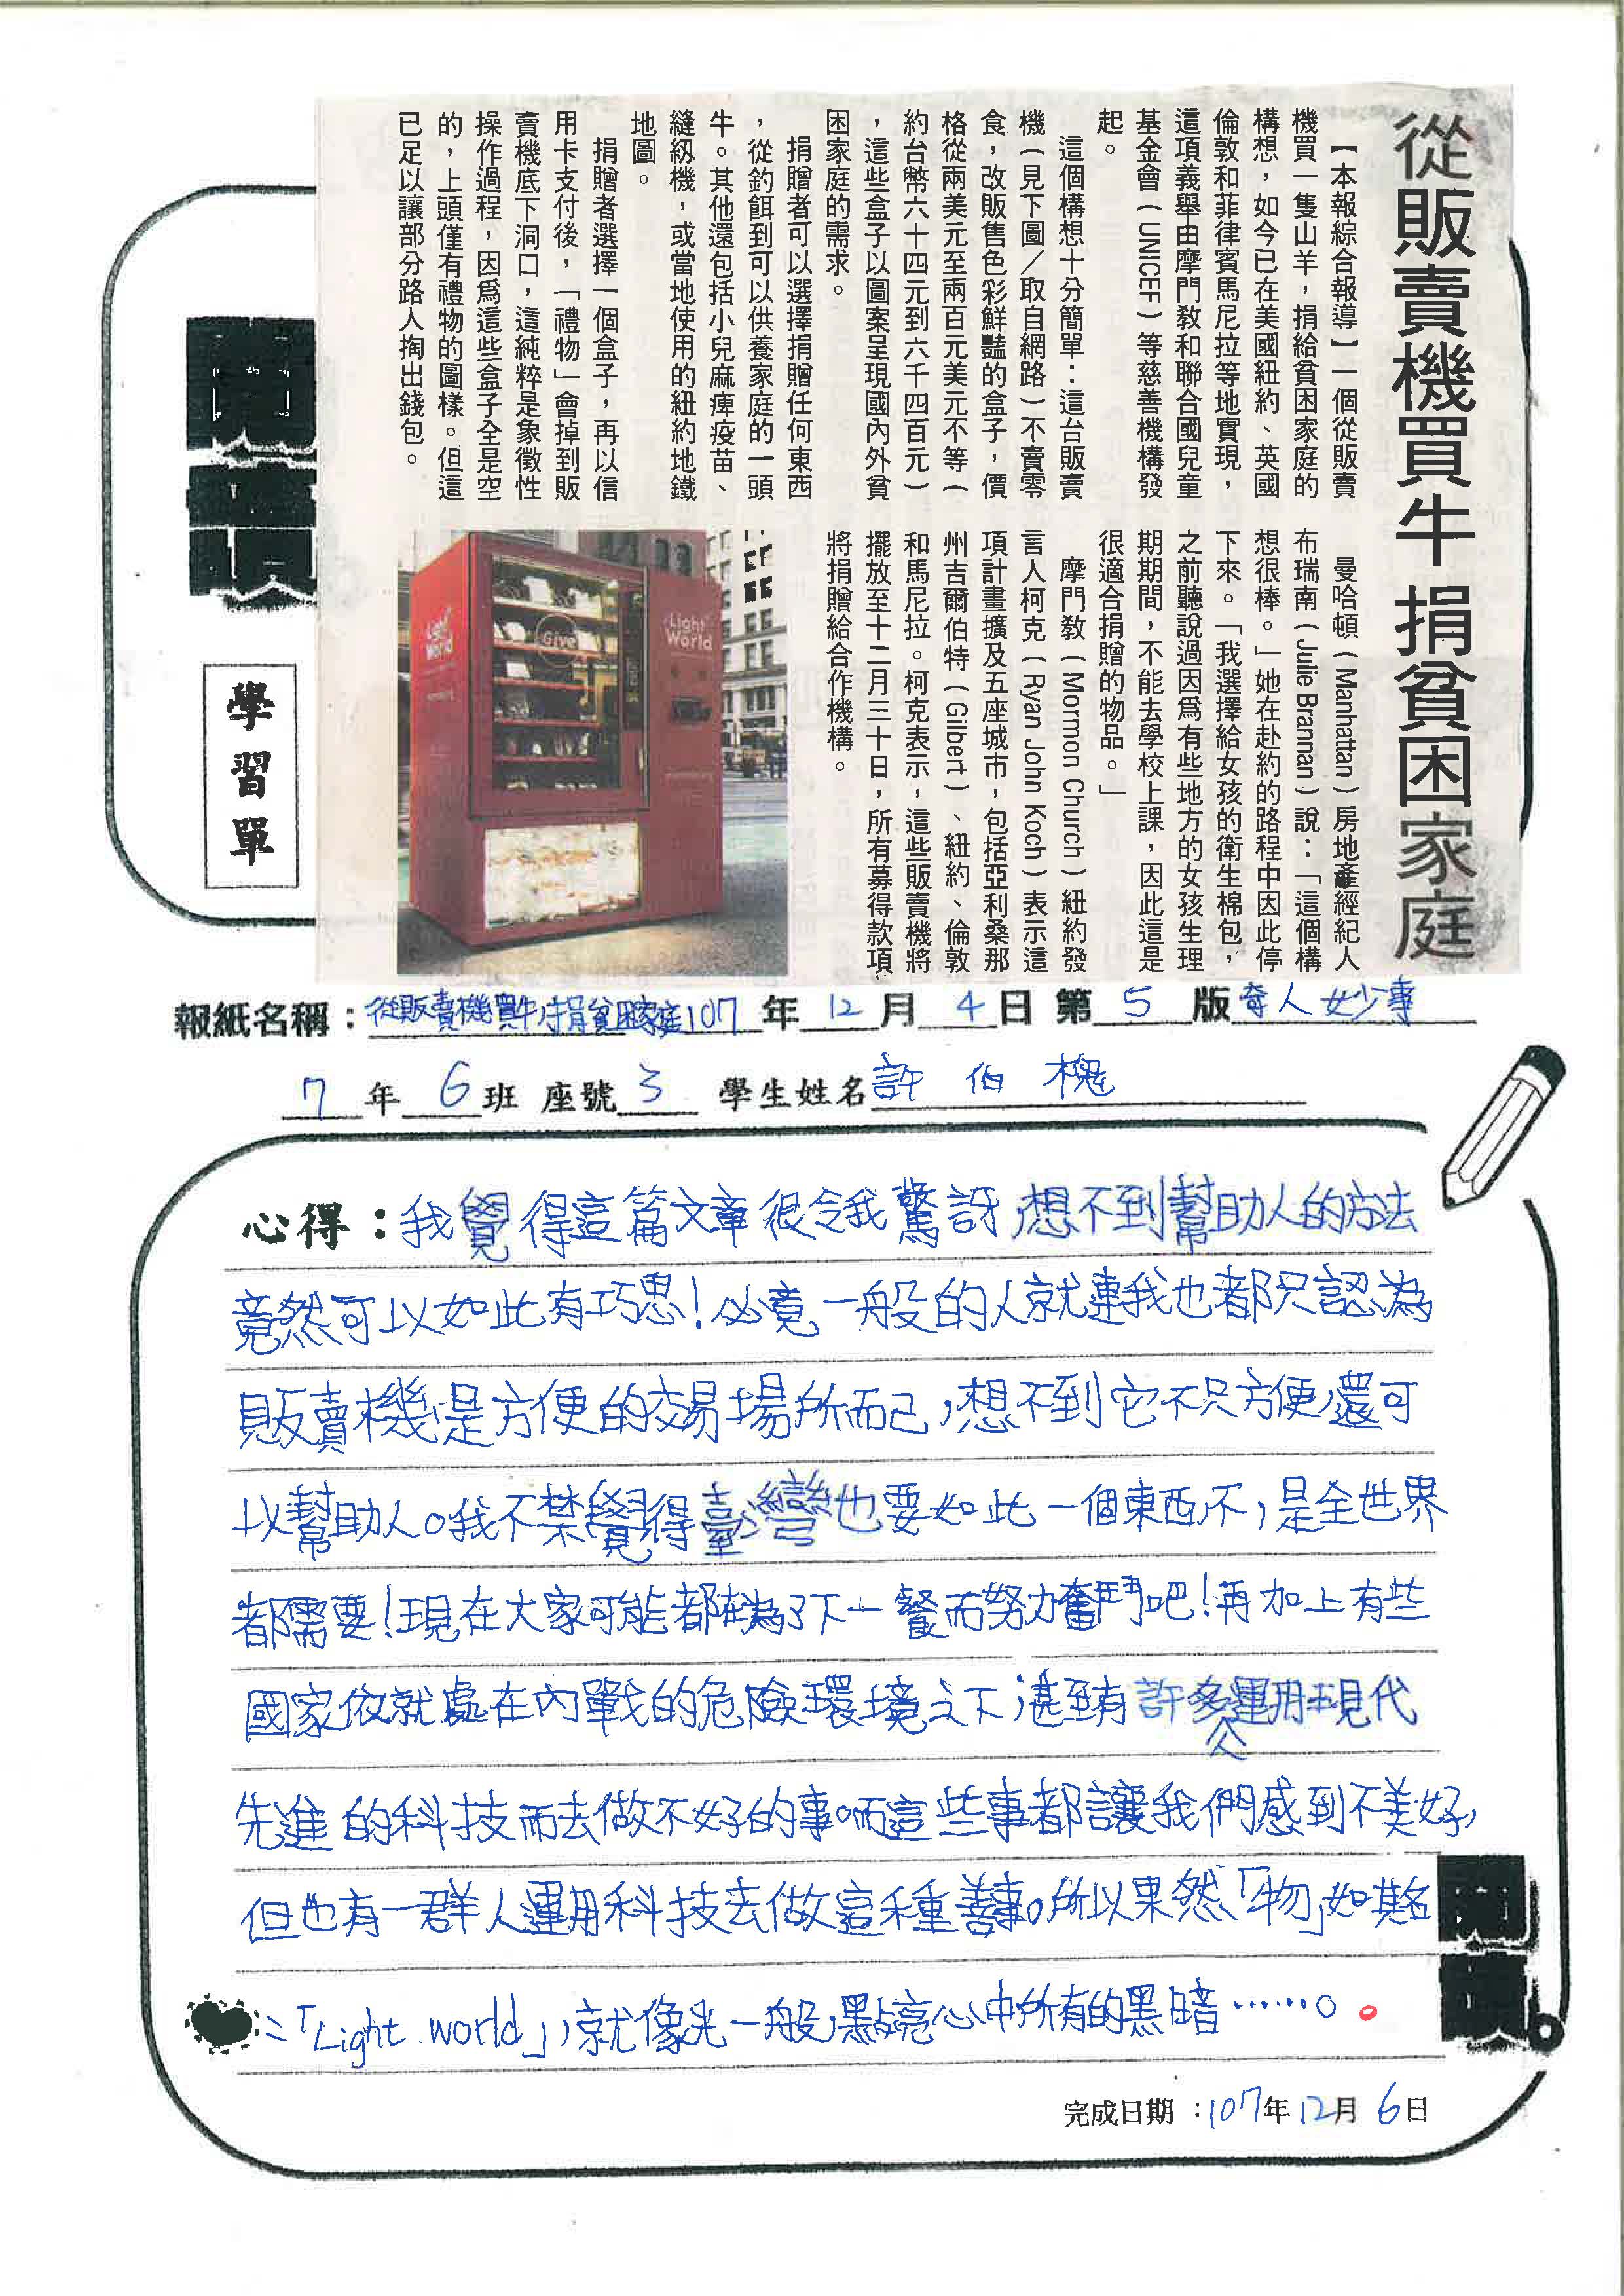 從販賣機買牛 捐貧困家庭
【本報綜合報導】一個從販賣
機買一隻山羊，捐給貧困家庭的
構想，如今已在美國紐約、英國
倫敦和菲律賓馬尼拉等地實現，
這項義舉由摩門教和聯合國兒童
基金會（UNICEF）等慈善機構發
起。
這個構想十分簡單：這台販賣
機（見下圖／取自網路）不賣零
食，改販售色彩鮮豔的盒子，價
格從兩美元至兩百元美元不等（
約台幣六十四元到六千四百元）
，這些盒子以圖案呈現國內外貧
困家庭的需求。
捐贈者可以選擇捐贈任何東西
，從釣餌到可以供養家庭的一頭
牛。其他還包括小兒麻痺疫苗、
縫紉機，或當地使用的紐約地鐵
地圖。
捐贈者選擇一個盒子，再以信
用卡支付後，「禮物」會掉到販
賣機底下洞口，這純粹是象徵性
操作過程，因為這些盒子全是空
的，上頭僅有禮物的圖樣。但這
已足以讓部分路人掏出錢包。
曼哈頓（Manhattan）房地產經紀人
布瑞南（Julie Brannan）說：「這個構
想很棒。」她在赴約的路程中因此停
下來。「我選擇給女孩的衛生棉包，
之前聽說過因為有些地方的女孩生理
期期間，不能去學校上課，因此這是
很適合捐贈的物品。」
摩門教（Mormon Church）紐約發
言人柯克（Ryan John Koch）表示這
項計畫擴及五座城市，包括亞利桑那
州吉爾伯特（Gilbert）、紐約、倫敦
和馬尼拉。柯克表示，這些販賣機將
擺放至十二月三十日，所有募得款項
將捐贈給合作機構。
Light World
Give
Light World
閱讀
學習單
報紙名稱：從販賣機買牛捐貧困家庭107年12月4日第5版奇人妙事
7年6班 座號3 學生姓名許伯槐
心得：我覺得這篇文章很令我驚訝，想不到幫助人的方法
竟然可以如此有巧思！必竟一般的人就連我也都只認為
販賣機是方便的交易場所而已，想不到它不只方便，還可
以幫助人。我不禁覺得臺灣也要如此一個東西，不，是全世界
都需要！現在大家可能都在為了下一餐而努力奮鬥吧！再加上有些
國家依就處在內戰的危險環境之下，甚至有許多運用現代
先進的科技而去做不好的事。而這些事都讓我們感到不美好，
但也有一群人運用科技去做這種善事。所以果然「物」如其名
：「Light world」，就像光一般，點亮心中所有的黑暗……。
閱讀。
完成日期：107年12月6日